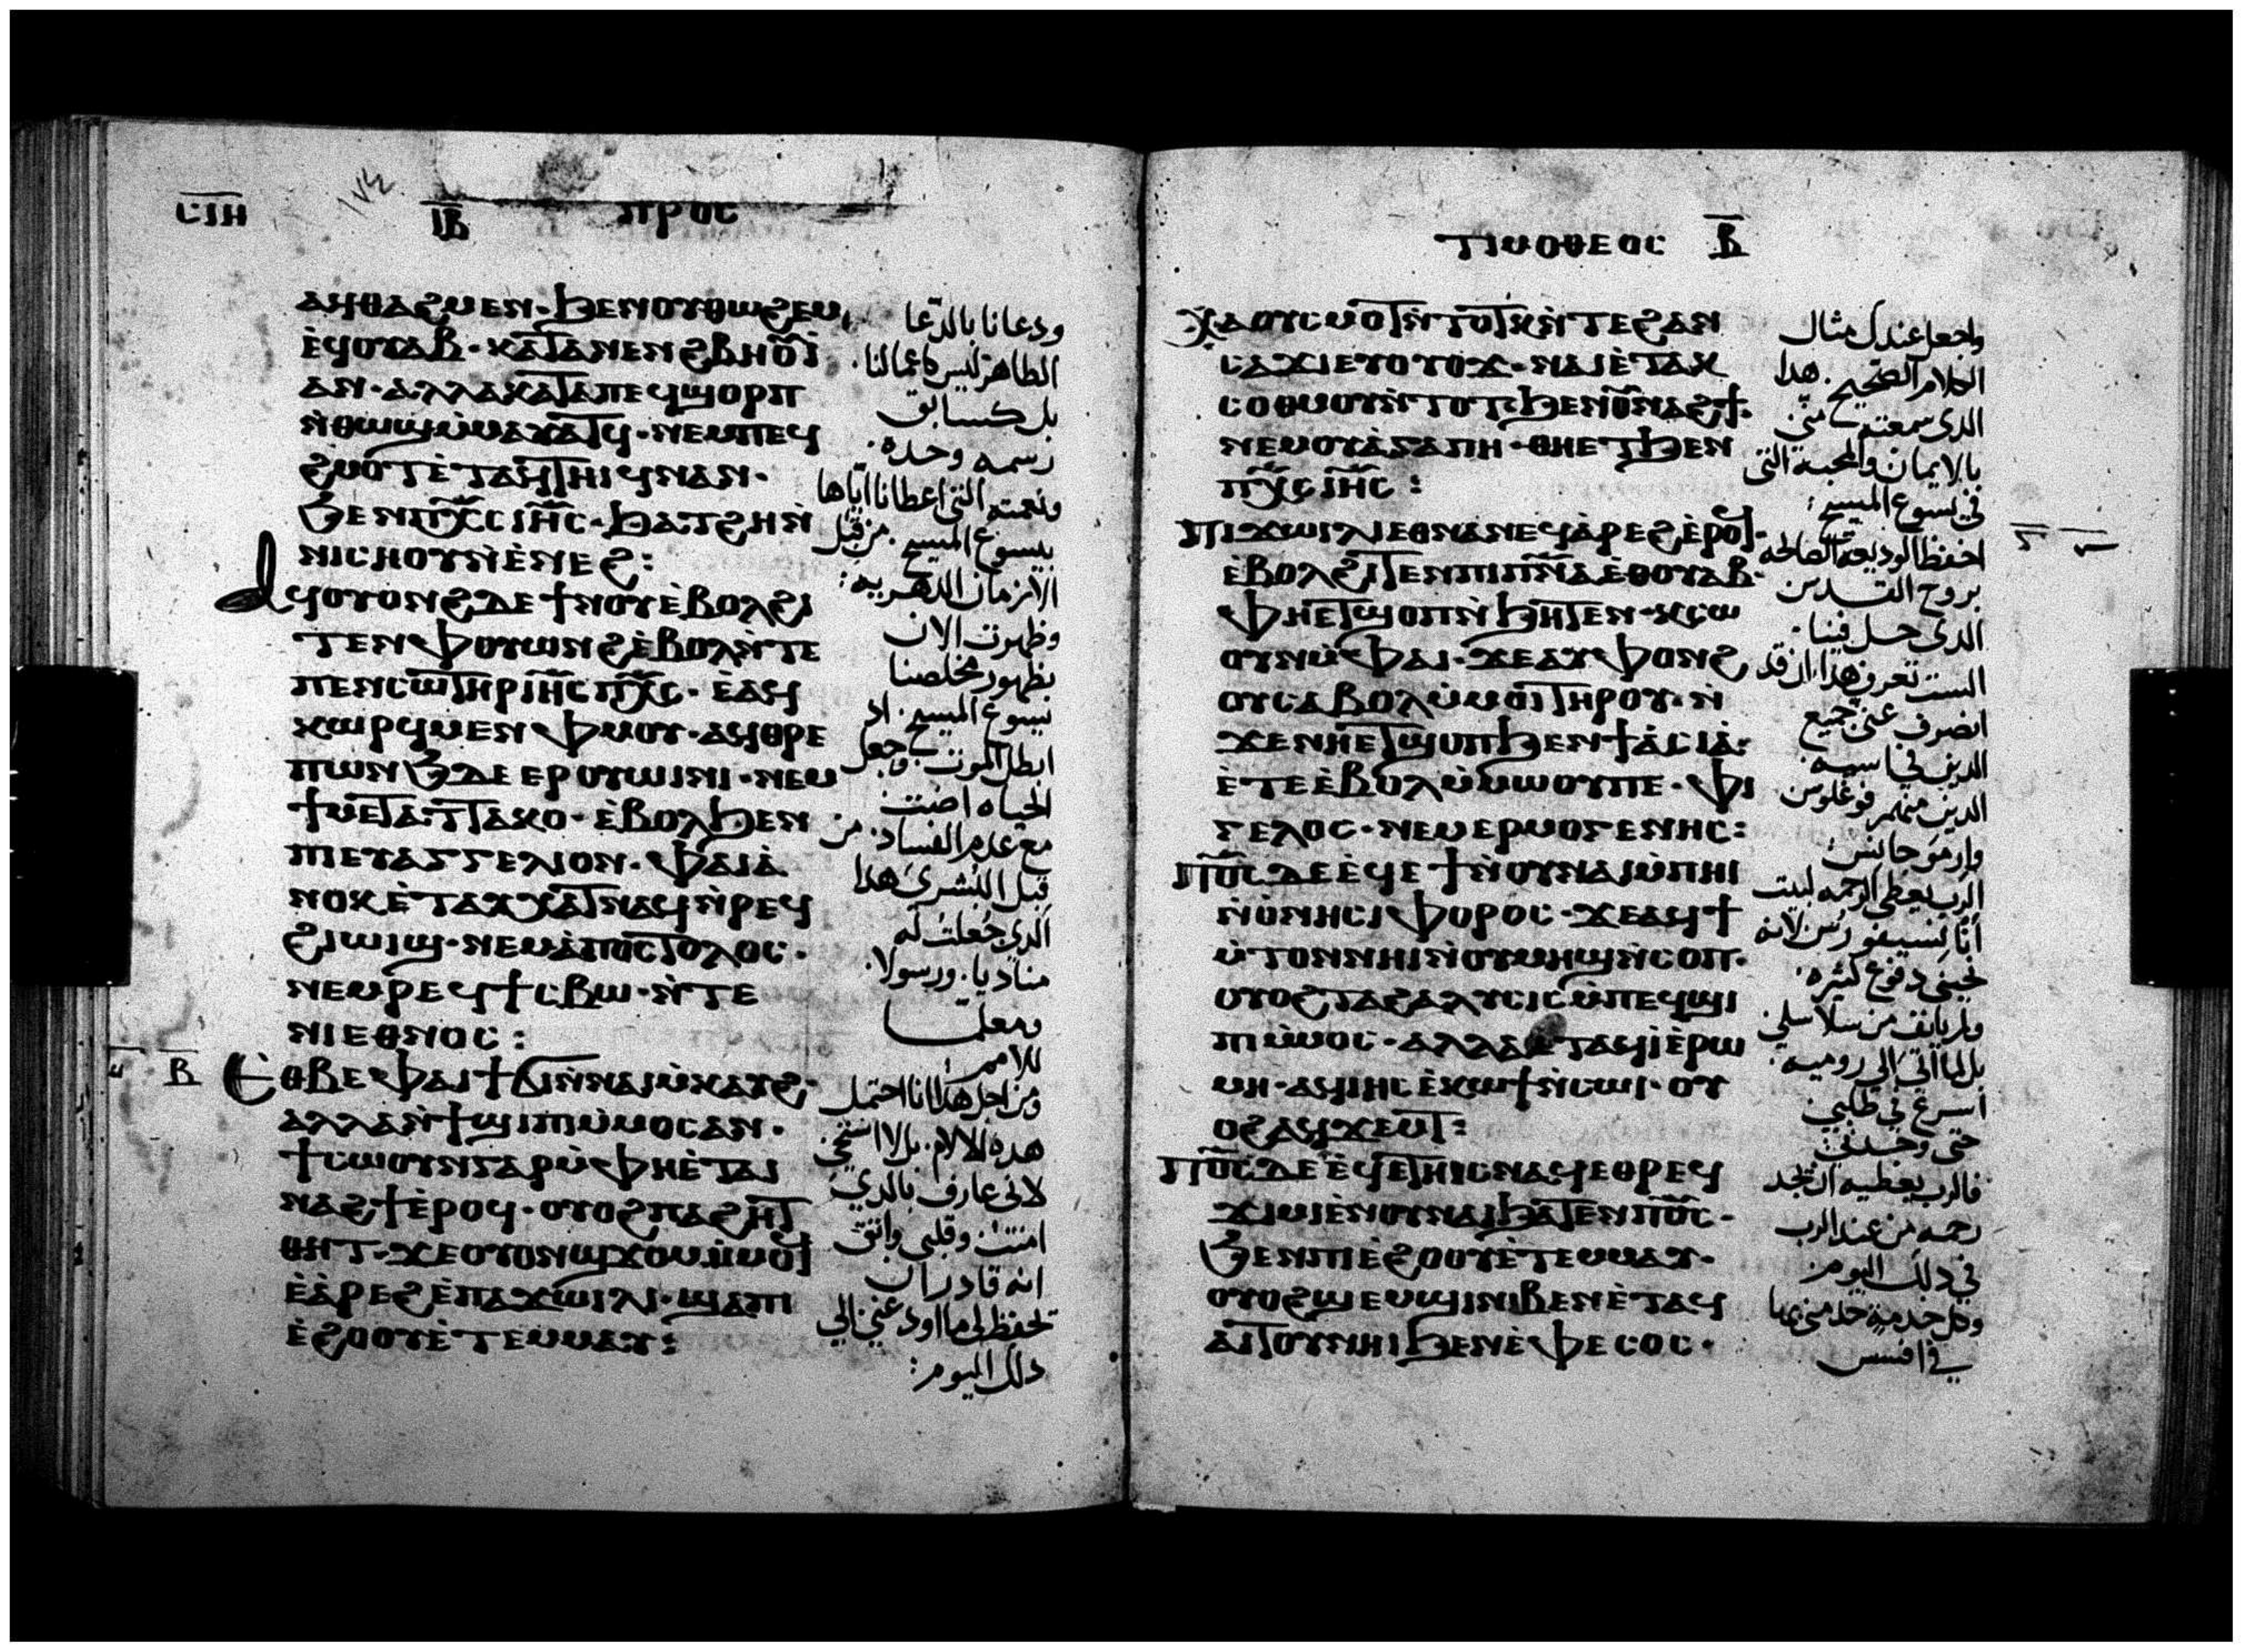 ⲥⲓⲏ
ⲓⲃ ⲡⲣⲟⲥ
ⲁϥⲑⲁϩⲙⲉⲛ· ϧⲉⲛⲟⲩⲑⲱϩⲉⲙ
ⲉ̀ϥⲟⲩⲁⲃ· ⲕⲁⲧⲁⲛⲉⲛϩⲃⲏⲟⲩⲓ̀
ⲁⲛ· ⲁⲗⲗⲁⲕⲁⲧⲁⲡⲉϥϣⲟⲣⲡ
ⲛ̀ⲑⲱϣⲙ̀ⲙⲁⲩⲁⲧϥ· ⲛⲉⲙⲡⲉϥ
ϩⲙⲟⲧⲉ̀ⲧⲁϥⲧⲏⲓϥⲛⲁⲛ·
ϧⲉⲛⲡⲭ̅ⲥ̅ⲓⲏ̅ⲥ̅· ϧⲁⲧϩⲏⲛ̀
ⲛⲓⲥⲏⲟⲩⲛ̀ⲉ̀ⲛⲉϩ:
ⲁϥⲟⲩⲟⲛϩⲇⲉϯⲛⲟⲩⲉ̀ⲃⲟⲗϩⲓ
ⲧⲉⲛⲫⲟⲩⲱⲛϩⲉ̀ⲃⲟⲗⲛ̀ⲧⲉ
ⲡⲉⲛⲥⲱⲧⲏⲣⲓⲏ̅ⲥ̅ⲡⲭ̅ⲥ̅· ⲉ̀ⲁϥ
ⲕⲱⲣϥⲙⲉⲛⲫⲙⲟⲩ· ⲁϥⲑⲣⲉ
ⲡⲱⲛϧⲇⲉⲉⲣⲟⲩⲱⲓⲛⲓ· ⲛⲉⲙ
ϯⲙⲉⲧⲁⲧⲧⲁⲕⲟ· ⲉ̀ⲃⲟⲗϧⲉⲛ
ⲡⲓⲉⲩⲁⲅⲅⲉⲗⲓⲟⲛ· ⲫⲁⲓⲁ̀
ⲛⲟⲕⲉ̀ⲧⲁⲩⲭⲁⲧⲛⲁϥⲛ̀ⲣⲉϥ
ϩⲓⲱⲓϣ· ⲛⲉⲙⲁ̀ⲡⲟⲥⲧⲟⲗⲟⲥ·
ⲛⲉⲙⲣⲉϥϯⲥⲃⲱ· ⲛ̀ⲧⲉ
ⲛⲓⲉⲑⲛⲟⲥ:
ⲃ ⲉⲑⲃⲉⲫⲁⲓϯϭⲓⲛ̀ⲛⲁⲓⲙ̀ⲕⲁⲩϩ·
ⲁⲗⲗⲁⲛ̀ϯϣⲓⲡⲓⲙ̀ⲙⲟⲥⲁⲛ·
ϯⲥⲱⲟⲩⲛⲅⲁⲣⲙ̀ⲫⲏⲉ̀ⲧⲁⲓ
ⲛⲁϩϯⲉ̀ⲣⲟϥ· ⲟⲩⲟϩⲡⲁϩⲏⲧ
ⲑⲏⲧ· ϫⲉⲟⲩⲟⲛϣϫⲟⲙⲙ̀ⲙⲟϥ
ⲉ̀ⲁ̀ⲣⲉϩⲉ̀ⲡⲁⲭⲱⲓⲗⲓ· ϣⲁⲡⲓ
ⲉ̀ϩⲟⲟⲩⲉ̀ⲧⲉⲙⲙⲁⲩ:
ودعانا بالدعا
الطاهر ليس كاعمالنا·
بل كسابق
رسمه وحده·
ونعمته التى اعطانا اياها
بيسوع المسيح· من قبل
الازمان الدهريه:
وظهرت الان
بظهور مخلصنا
يسوع المسيح· اد
ابطل الموت وجعل
الحياه اضت
مع عدم الفساد· من
قبل البشرى هدا
الدى جعلت له
مناديا· ورسولا·
ومعلما
للامم:
ومن اجل هدا انا احتمل
هده الالام· بل لا استحى
لانى عارف بالدى
امنت وقلبى واثق
انه قادر ان
تحفظ لى ما اودعنى الى
دلك اليوم:
ⲧⲓⲙⲟⲑⲉⲟⲥ ⲃ
ⲭⲁⲟⲩⲥⲙⲟⲧⲛ̀ⲧⲟⲧⲕⲛ̀ⲧⲉϩⲁⲛ
ⲥⲁϫⲓⲉⲩⲟⲩⲟϫ· ⲛⲁⲓⲉ̀ⲧⲁⲕ
ⲥⲟⲑⲙⲟⲩⲛ̀ⲧⲟⲧ· ϧⲉⲛⲟⲩⲛⲁϩϯ·
ⲛⲉⲙⲟⲩⲁ̀ⲅⲁⲡⲏ· ⲑⲏⲉⲧϧⲉⲛ
ⲡⲭ̅ⲥ̅ⲓⲏ̅ⲥ̅:
ⲡⲓⲭⲱⲓⲗⲓⲉⲑⲛⲁⲛⲉϥⲁ̀ⲣⲉϩⲉ̀ⲣⲟϥ·
ⲉ̀ⲃⲟⲗϩⲓⲧⲉⲛⲡⲓⲡ̅ⲛ̅ⲁ̅ⲉ̀ⲑⲟⲩⲁⲃ·
ⲫⲏⲉⲧϣⲟⲡⲛ̀ϧⲏⲧⲉⲛ· ⲕⲥⲱ
ⲟⲩⲛⲙ̀ⲫⲁⲓ· ϫⲉⲁⲩⲫⲟⲛϩ
ⲟⲩⲥⲁⲃⲟⲗⲙ̀ⲙⲟⲓⲧⲏⲣⲟⲩ· ⲛ̀
ϫⲉⲛⲏⲉⲧϣⲟⲡϧⲉⲛϯⲁ̀ⲥⲓⲁ̀·
ⲉ̀ⲧⲉⲉ̀ⲃⲟⲗⲙ̀ⲙⲱⲟⲩⲡⲉ· ⲫⲓ
ⲅⲉⲗⲟⲥ· ⲛⲉⲙⲉⲣⲙⲟⲅⲉⲛⲏⲥ:
ⲡ̅ⲟ̅ⲥ̅ⲇⲉⲉ̀ϥⲉϯⲛ̀ⲟⲩⲛⲁⲓⲙ̀ⲡⲏⲓ
ⲛ̀ⲟ̀ⲛⲏⲥⲓⲫⲟⲣⲟⲥ· ϫⲉⲁϥϯ
ⲙ̀ⲧⲟⲛⲛⲏⲓⲛ̀ⲟⲩⲙⲏϣⲛ̀ⲥⲟⲡ·
ⲟⲩⲟϩⲧⲁϩⲁⲗⲩⲥⲓⲥⲙ̀ⲡⲉϥϣⲓ
ⲡⲓⲙ̀ⲙⲟⲥ· ⲁⲗⲗⲁⲉ̀ⲧⲁϥⲓ̀ⲉ̀ⲣⲱ
ⲙⲏ· ⲁϥⲓⲏⲥⲉ̀ⲕⲱϯⲛ̀ⲥⲱⲓ· ⲟⲩ
ⲟϩⲁϥϫⲉⲙⲧ:
ⲡ̅ⲟ̅ⲥ̅ⲇⲉⲉ̀ϥⲉ̀ⲧⲏⲓⲥⲛⲁϥⲉⲑⲣⲉϥ
ϫⲓⲙⲓⲉ̀ⲛⲟⲩⲛⲁⲓϧⲁⲧⲉⲛⲡ̅ⲟ̅ⲥ̅·
ϧⲉⲛⲡⲓⲉ̀ϩⲟⲟⲩⲉ̀ⲧⲉⲙⲙⲁⲩ·
ⲟⲩⲟϩϣⲉⲙϣⲓⲛⲓⲃⲉⲛⲉ̀ⲧⲁϥ
ⲁⲓⲧⲟⲩⲛⲏⲓϧⲉⲛⲉ̀ⲫⲉⲥⲟⲥ·
واجعل عندك مثال
الكلام الصحيح· هدا
الدى سمعته منى
بالايمان والمحبه التى
فى يسوع المسيح:
احفظ الوديعه الصالحه
بروح القدس
الدى حل فينا·
الست تعرف هدا ان قد
انصرف عنى جميع
الدين فى اسيه·
الدين منهم فوغلوس
وارموجانس:
الرب يعطى الرحمه لبيت
انا نسيفورس لانه
نيحنى دفوع كثيره·
ولم يانف من سلاسلى
بل لما اتى الى روميه·
اسرع فى طلبى
حتى وجدنى
فالرب يعطيه ان يجد
رحمه من عند الرب
فى دلك اليوم·
وكل خدمة خدمنى بها
فى افسس